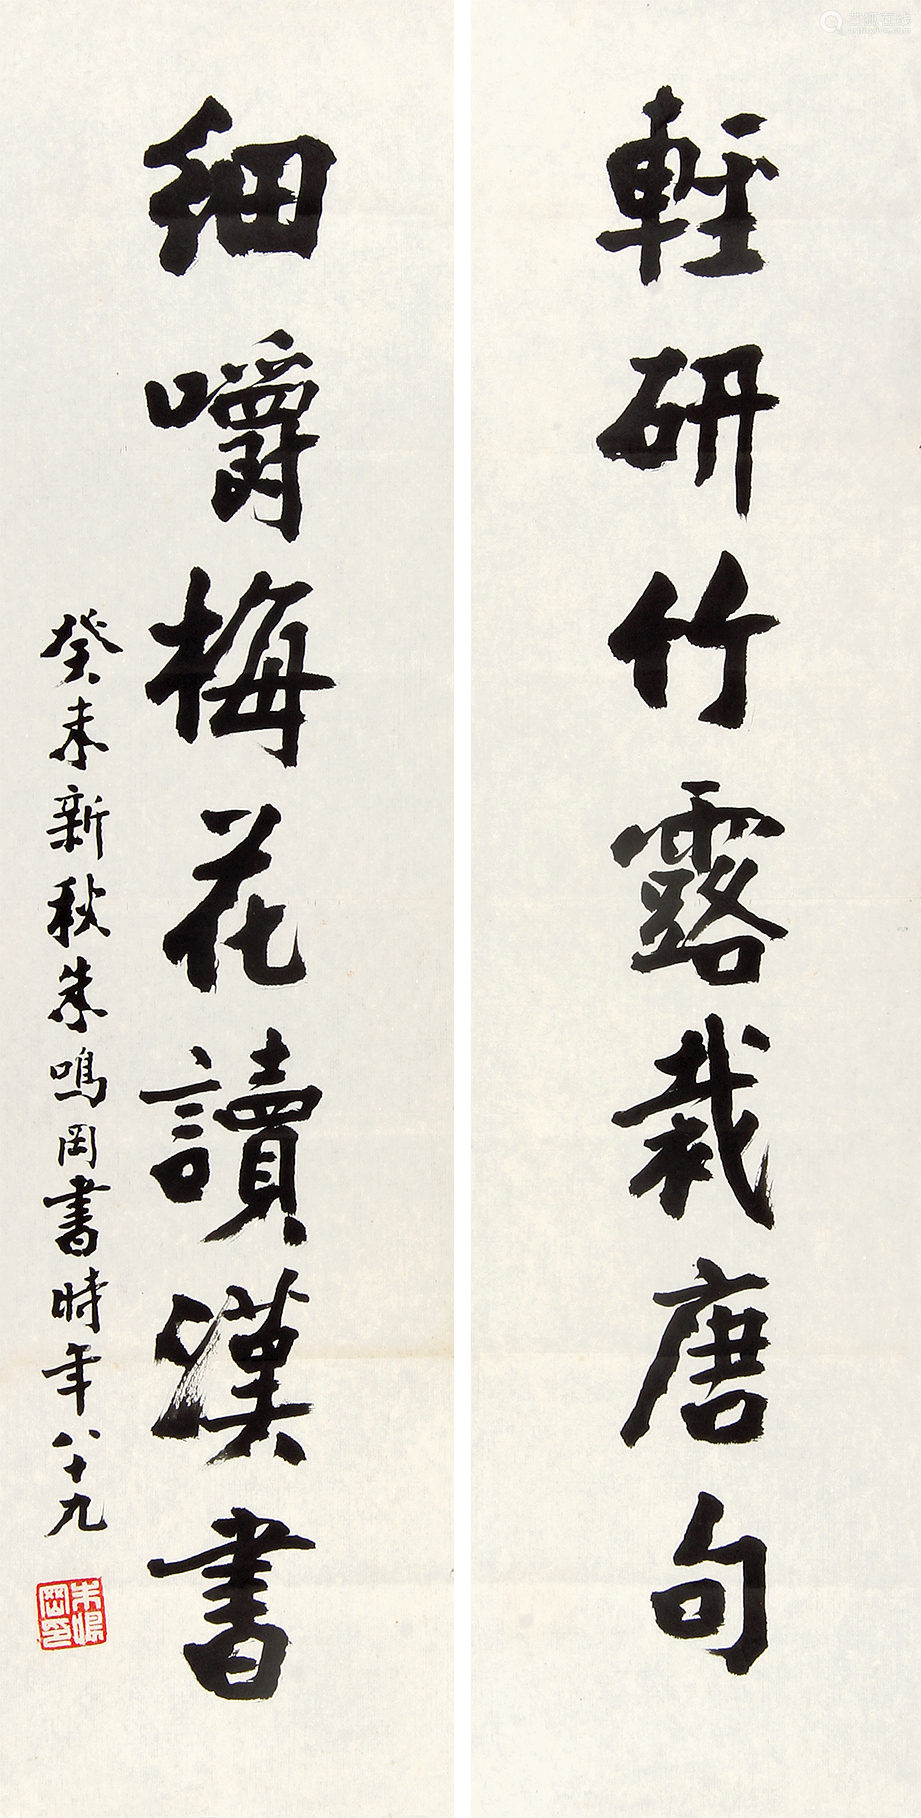 輕研竹露裁唐句
細嚼梅花讀漢書
癸未新秋朱鳴岡書時年八十九
朱鳴岡印